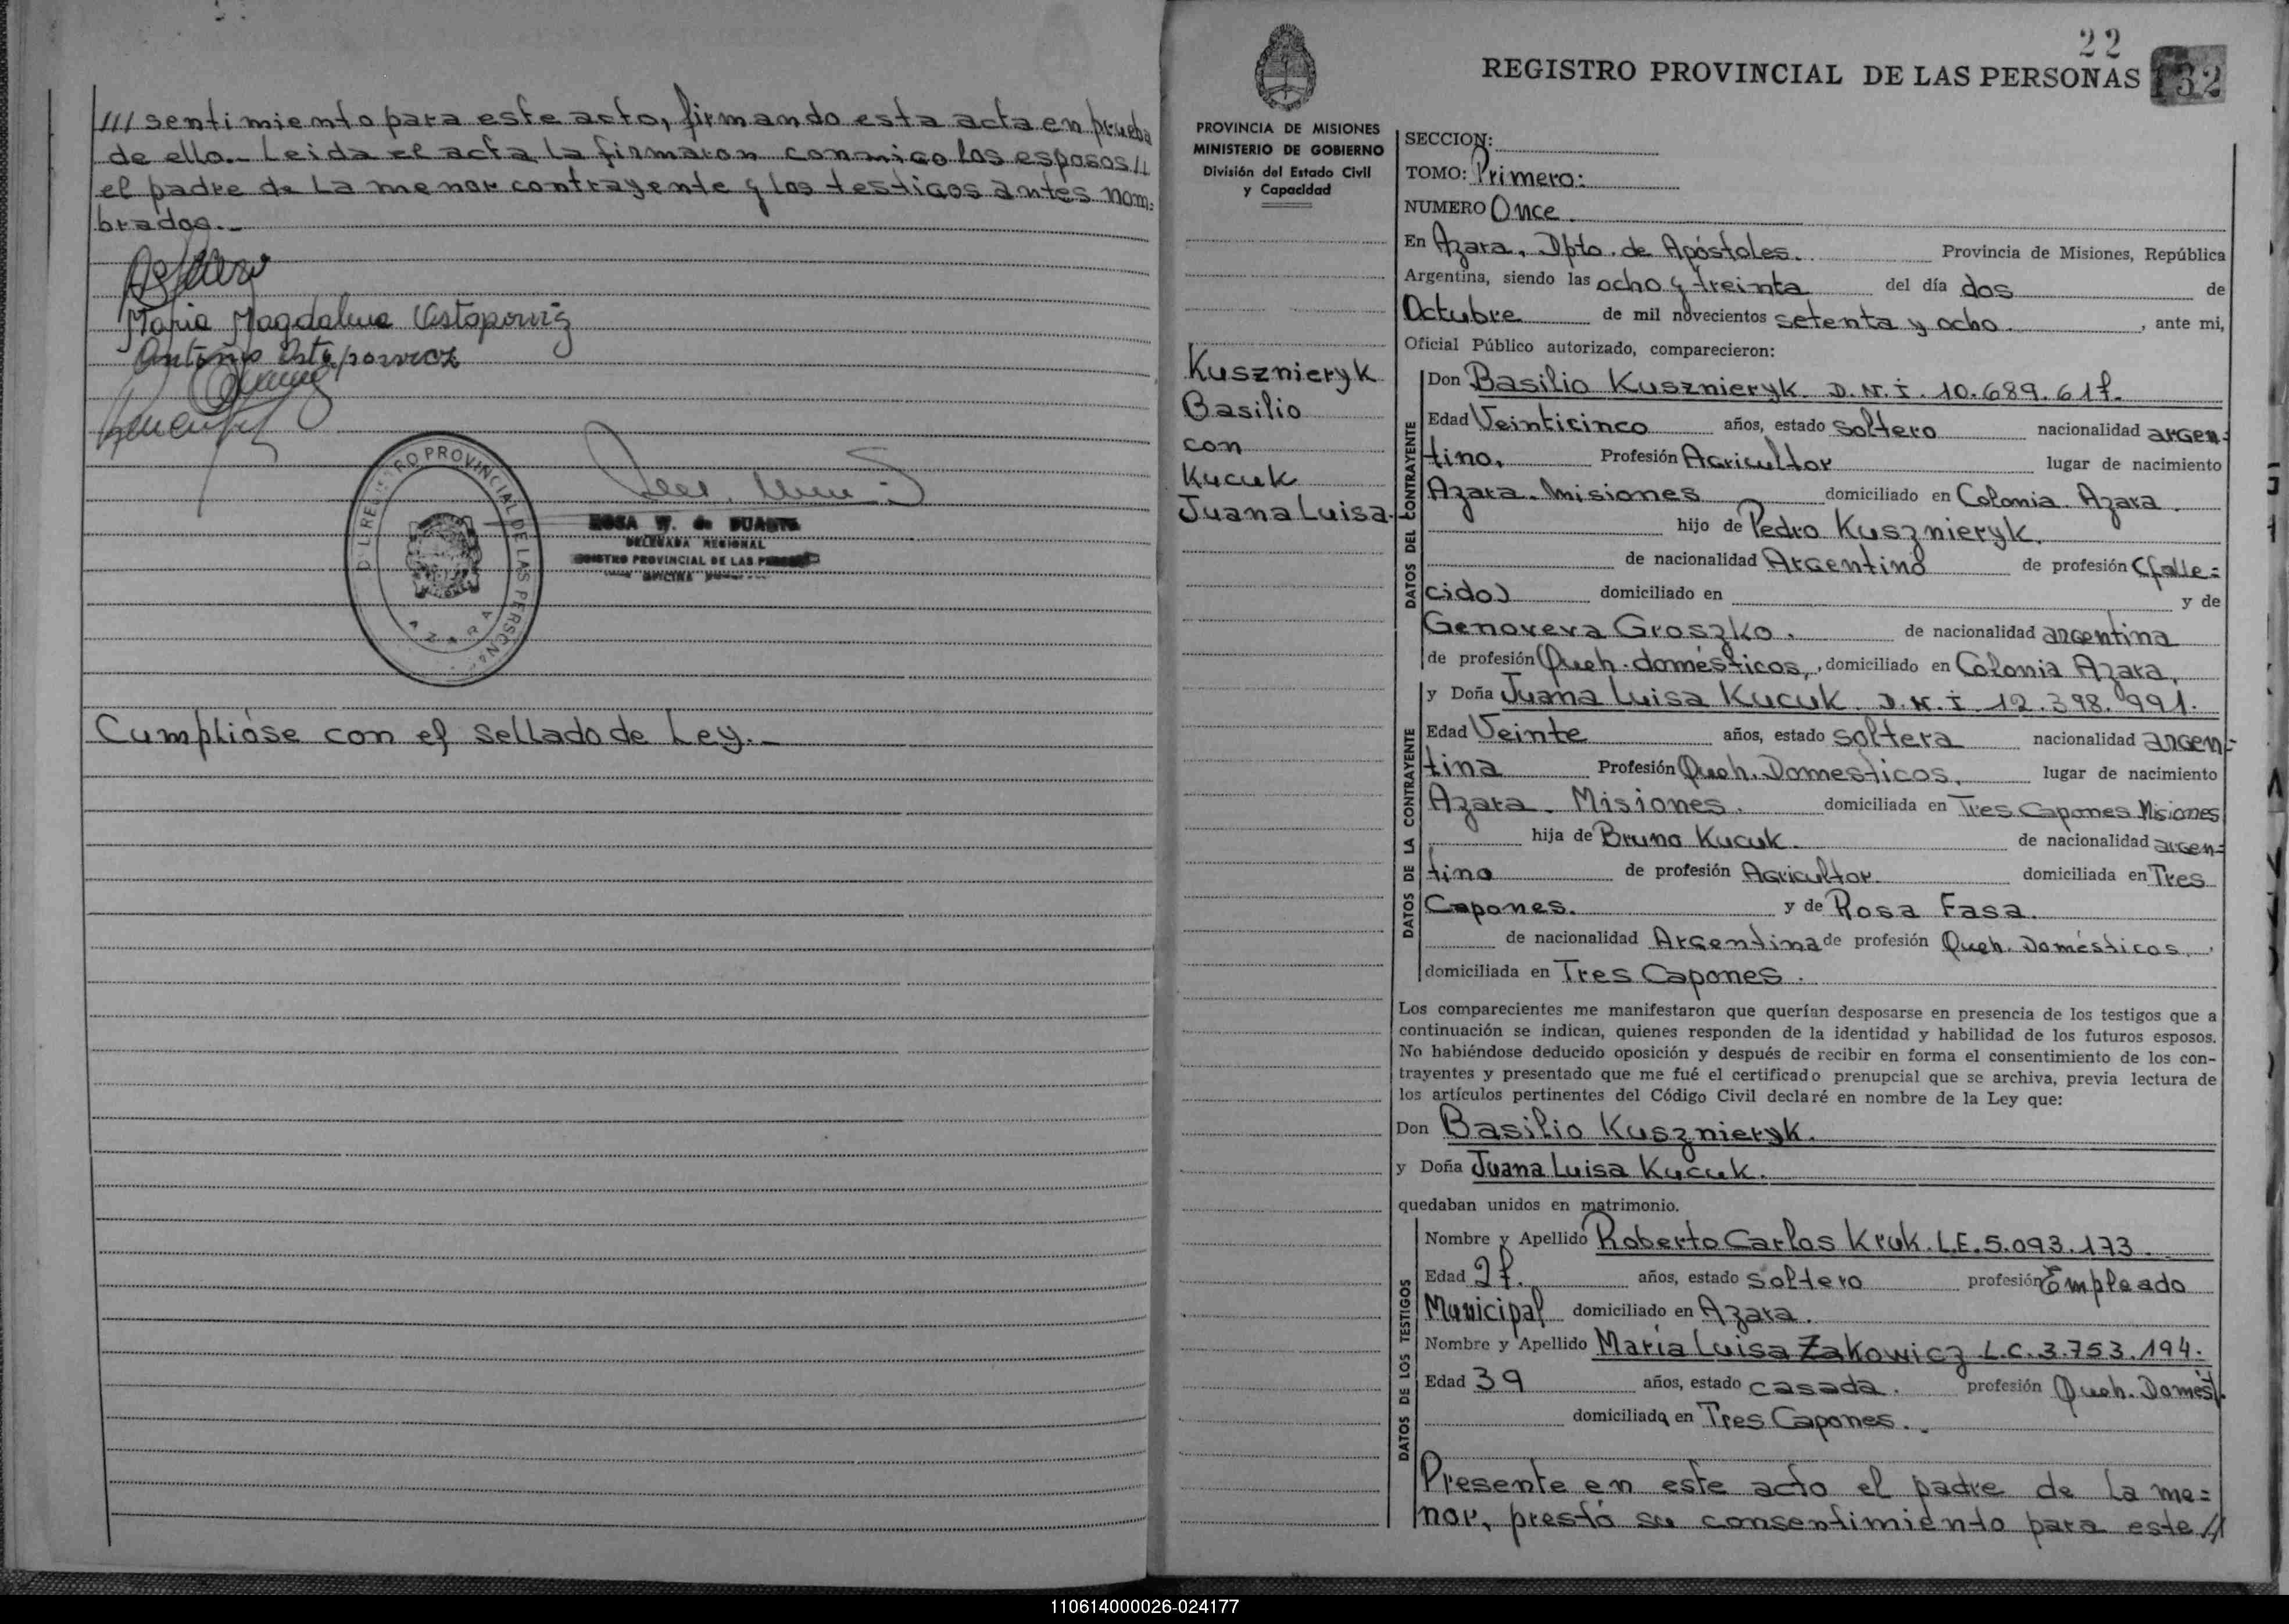 /// sentimiento para este acto, firmando esta acta en prueba
de ello.- Leida el acta la firmaron conmigo los esposos //
el padre de la menor contrayente y los testigos antes nom=
brados.-
Maria Magdalena Ostapowicz
Antonio Ostapowicz
REGISTRO PROVINCIAL DE LAS PERSONAS
AZARA
ROSA W. de DUARTE
DELEGADA REGIONAL
REGISTRO PROVINCIAL DE LAS PERSONAS
OFICINA
Cumplióse con el sellado de Ley.-
22
REGISTRO PROVINCIAL DE LAS PERSONAS
132
PROVINCIA DE MISIONES
MINISTERIO DE GOBIERNO
División del Estado Civil
y Capacidad
Kusznieryk
Basilio
con
Kucuk
Juana Luisa.
SECCION:
TOMO: Primero:
NUMERO Once.
En Azara, Dpto. de Apóstoles. Provincia de Misiones, República
Argentina, siendo las ocho y treinta del día dos de
Octubre de mil novecientos setenta y ocho. , ante mi,
Oficial Público autorizado, comparecieron:
DATOS DEL CONTRAYENTE
Don Basilio Kusznieryk. D.N.I. 10.689.617.
Edad Veinticinco años, estado soltero nacionalidad argen=
tino. Profesión Agricultor lugar de nacimiento
Azara. Misiones domiciliado en Colonia Azara.
hijo de Pedro Kusznieryk.
de nacionalidad Argentino de profesión (falle=
cido) domiciliado en y de
Genoveva Groszko. de nacionalidad argentina
de profesión Queh. domésticos, , domiciliado en Colonia Azara,
DATOS DE LA CONTRAYENTE
y Doña Juana Luisa Kucuk. D.N.I. 12.398.991.
Edad Veinte años, estado soltera nacionalidad argen=
tina Profesión Queh. Domesticos. lugar de nacimiento
Azara. Misiones. domiciliada en Tres Capones Misiones
hija de Bruno Kucuk. de nacionalidad argen=
tino de profesión Agricultor. domiciliada en Tres
Capones. y de Rosa Fasa.
de nacionalidad Argentina de profesión Queh. Domésticos.
domiciliada en Tres Capones.
Los comparecientes me manifestaron que querían desposarse en presencia de los testigos que a
continuación se indican, quienes responden de la identidad y habilidad de los futuros esposos.
No habiéndose deducido oposición y después de recibir en forma el consentimiento de los con-
trayentes y presentado que me fué el certificado prenupcial que se archiva, previa lectura de
los artículos pertinentes del Código Civil declaré en nombre de la Ley que:
Don Basilio Kusznieryk.
y Doña Juana Luisa Kucuk.
quedaban unidos en matrimonio.
DATOS DE LOS TESTIGOS
Nombre y Apellido Roberto Carlos Kruk. L.E. 5.093.173.
Edad 27. años, estado soltero profesión Empleado
Municipal domiciliado en Azara.
Nombre y Apellido María Luisa Zakowicz L.C. 3.753.194.
Edad 39 años, estado casada. profesión Queh. Domést.
domiciliada en Tres Capones.-
Presente en este acto el padre de la me=
nor, prestó su consentimiento para este //
110614000026-024177